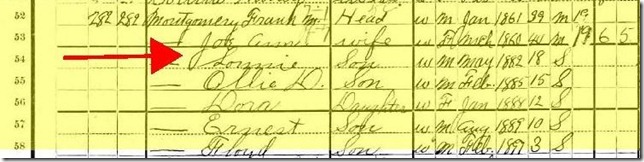 52 282 282 Montgomery Frank M Head W M Jan 1861 39 M 19
53 — Wife W F Mch 1860 40 M 19 6 5
54 — Lonnie Son W M May 1882 18 S
55 — Ollie D. Son W M Feb 1885 15 S
56 — Dora Daughter W F Jan 1888 12 S
57 — Ernest Son W M Aug 1889 10 S
58 — Floyd Son W M Feb 1897 3 S